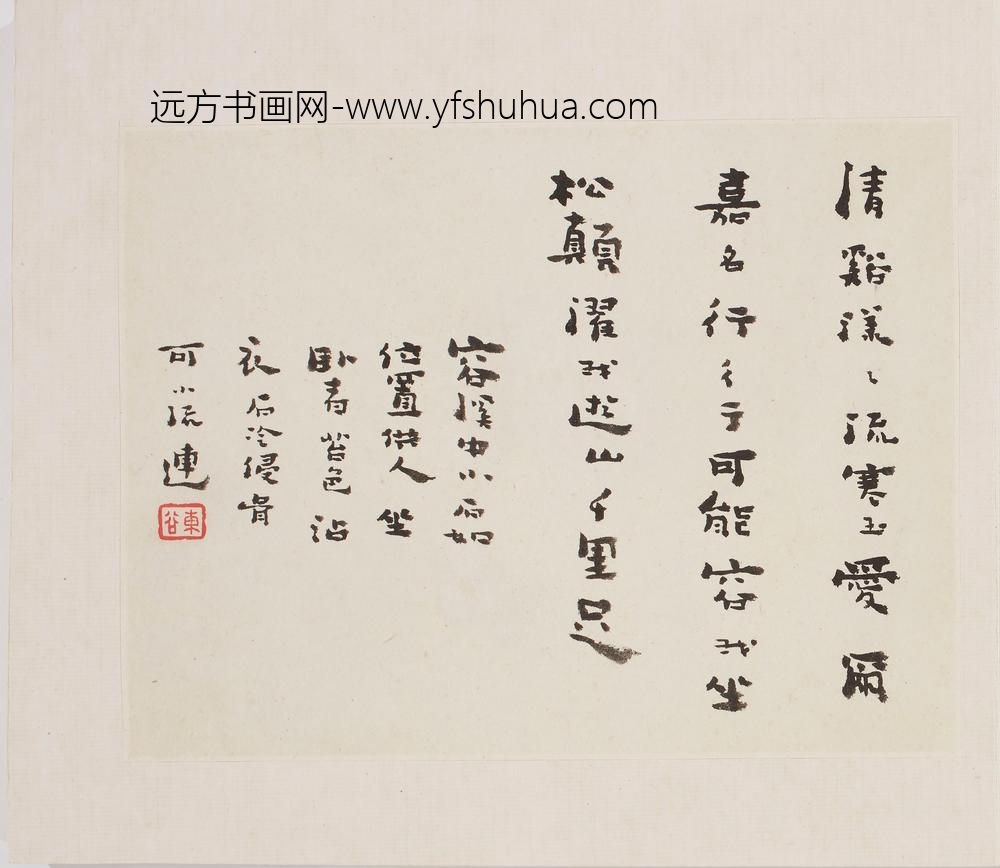 远方书画网-www.yfshuhua.com
清谿漾々流寒玉愛爾
嘉名行彳亍可能容我坐
松顛濯我遊山千里足
容溪中小石如
位置供人坐
臥青苔色沾
衣石冷侵骨
可小流連
東谷